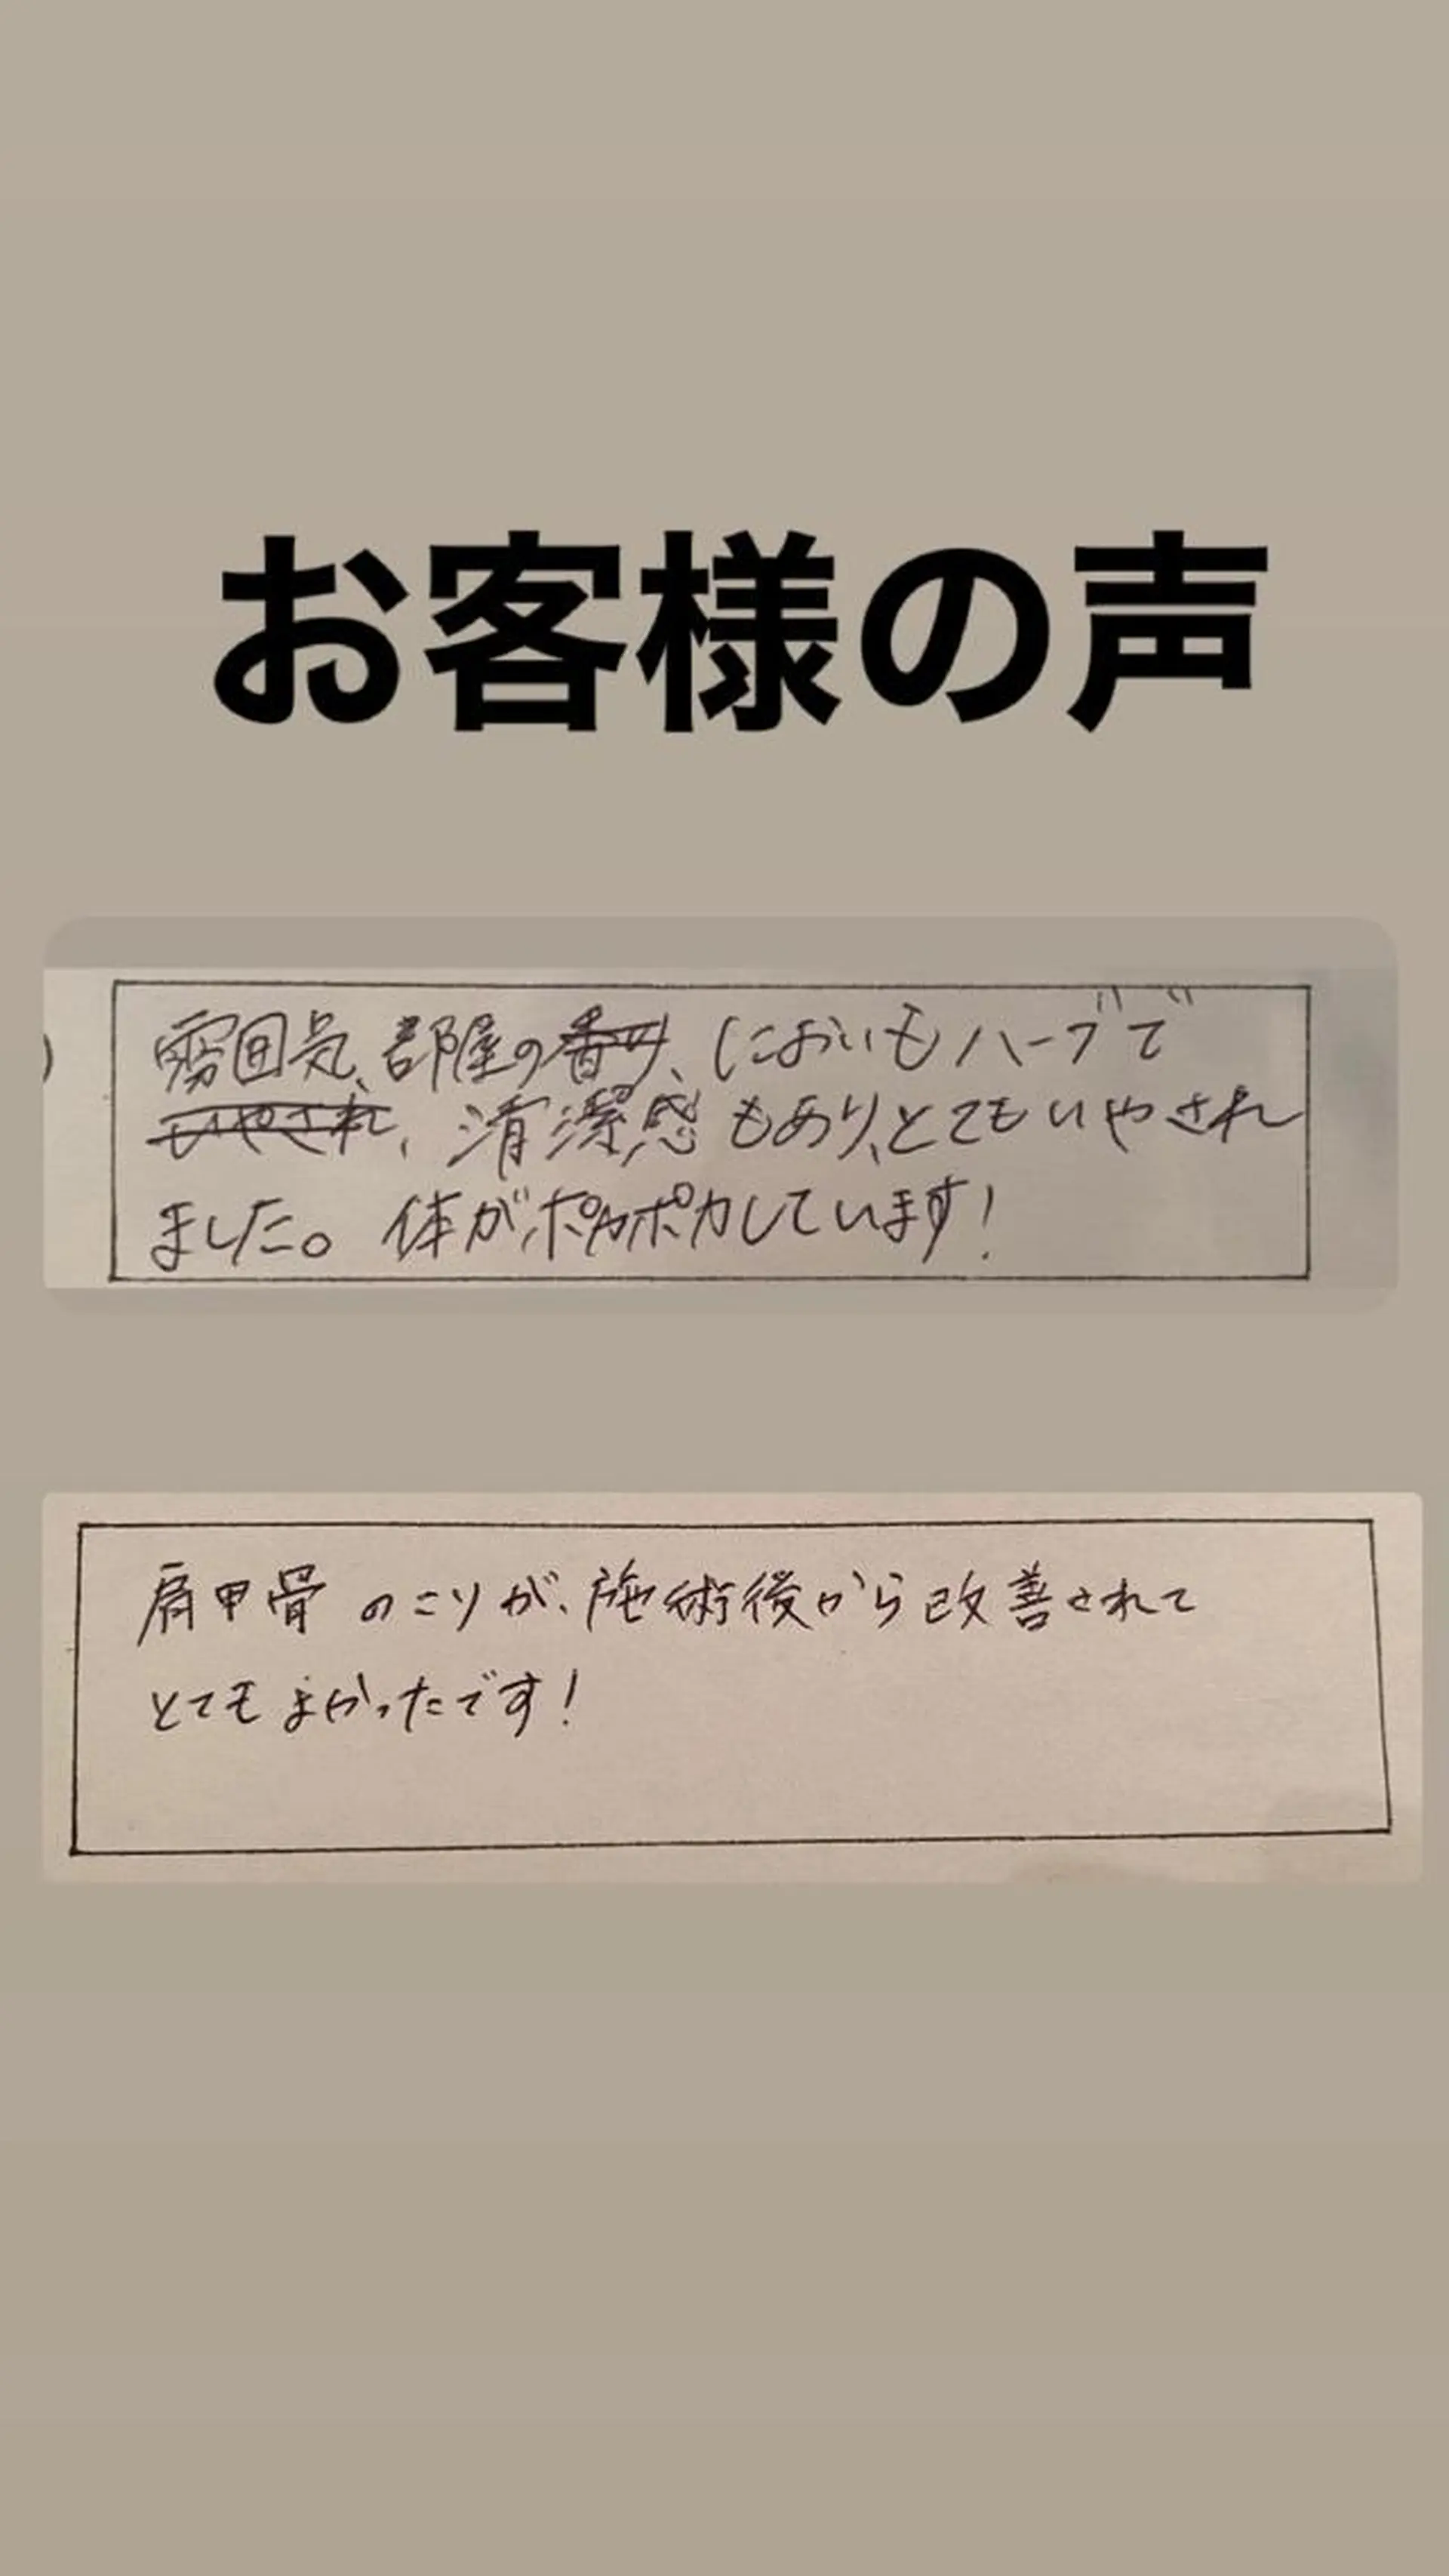 お客様の声
雰囲気、部屋の香り、においもハーブで
もいやされ、清潔感もあり、とてもいやされ
ました。体がポカポカしています!
肩甲骨のこりが、施術後から改善されて
とてもよかったです!